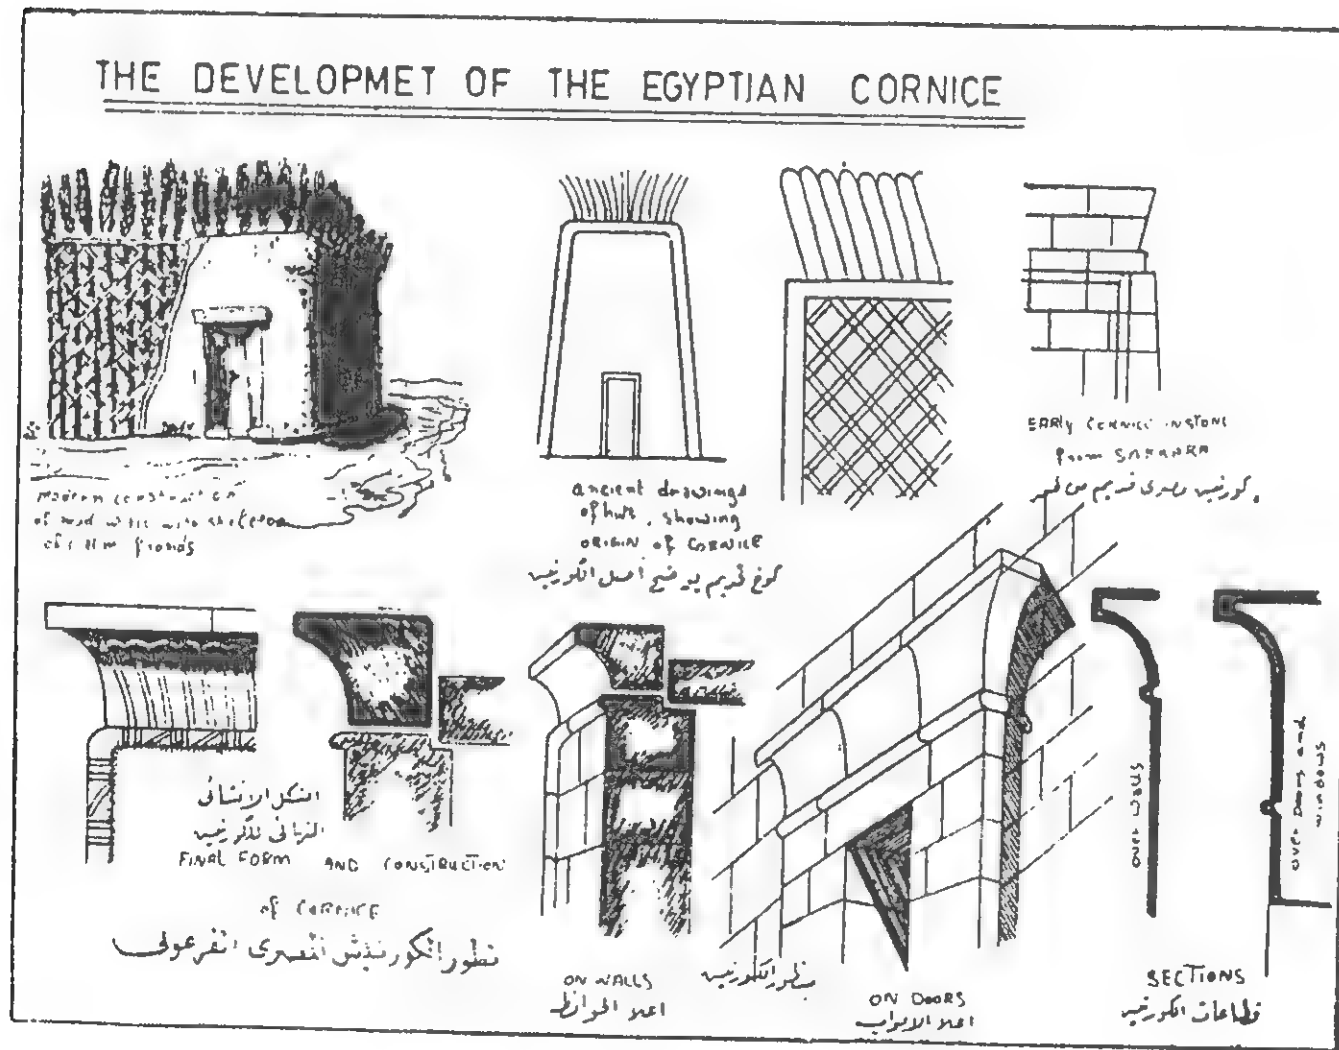 THE DEVELOPMET OF THE EGYPTIAN CORNICE
modern construction
of mud with skeleton
of palm fronds
ancient drawings
of hut, showing
ORIGIN of CORNICE
كوخ قديم يوضح أصل الكورنيش
EARLY CORNICE IN STONE
from SAKKARA
كورنيش مصرى قديم من
الشكل الإنشائى
النهائى للكورنيش
FINAL FORM AND CONSTRUCTION
of CORNICE
تطور الكورنيش المصرى الفرعونى
ON WALLS
اعلا الحوائط
منظور الكورنيش
ON DOORS
اعلا الابواب
over walls
over Doors and
windows
SECTIONS
قطاعات الكورنيش